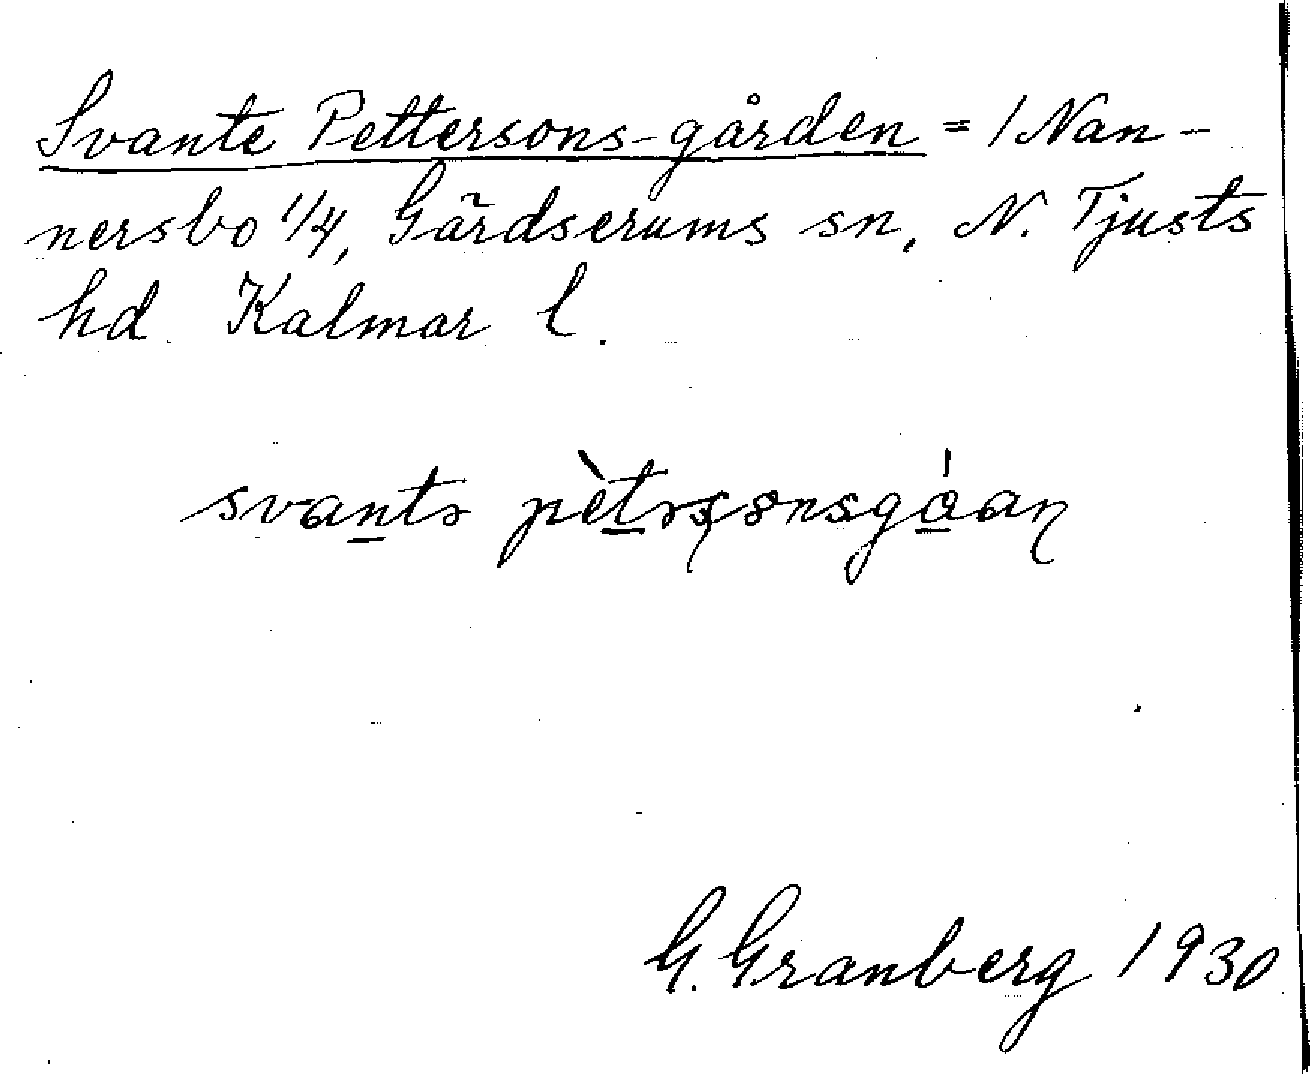 Svante Pettersons-gården = 1 Nan-
nersbo 1/4, Gärdserums sn, N. Tjusts
hd Kalmar l.
svantə pètəʂsonsgǻan
G. Granberg 1930